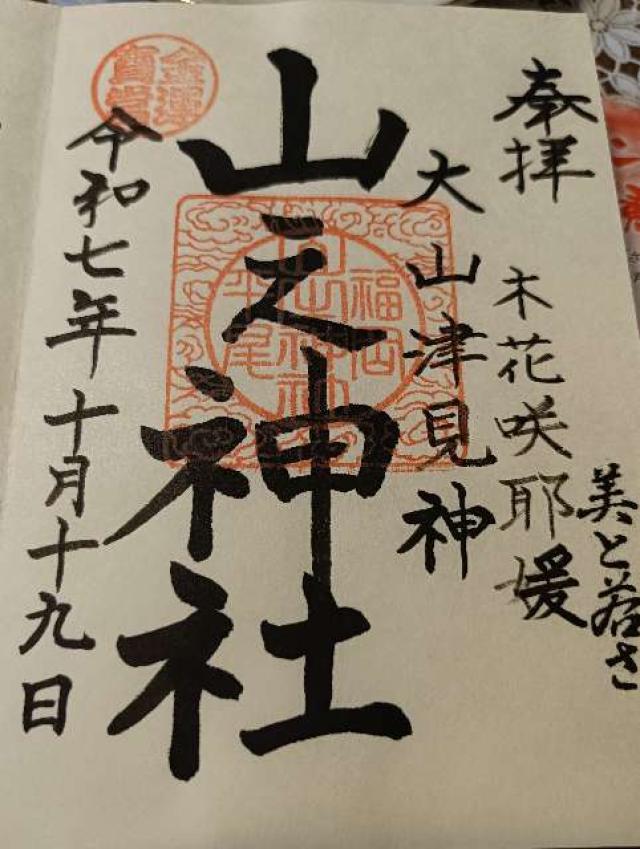 奉拝
木花咲耶媛
美と若さ
大山津見神
山之神社
福岡
山之神社
平尾
金運
令和七年十月十九日